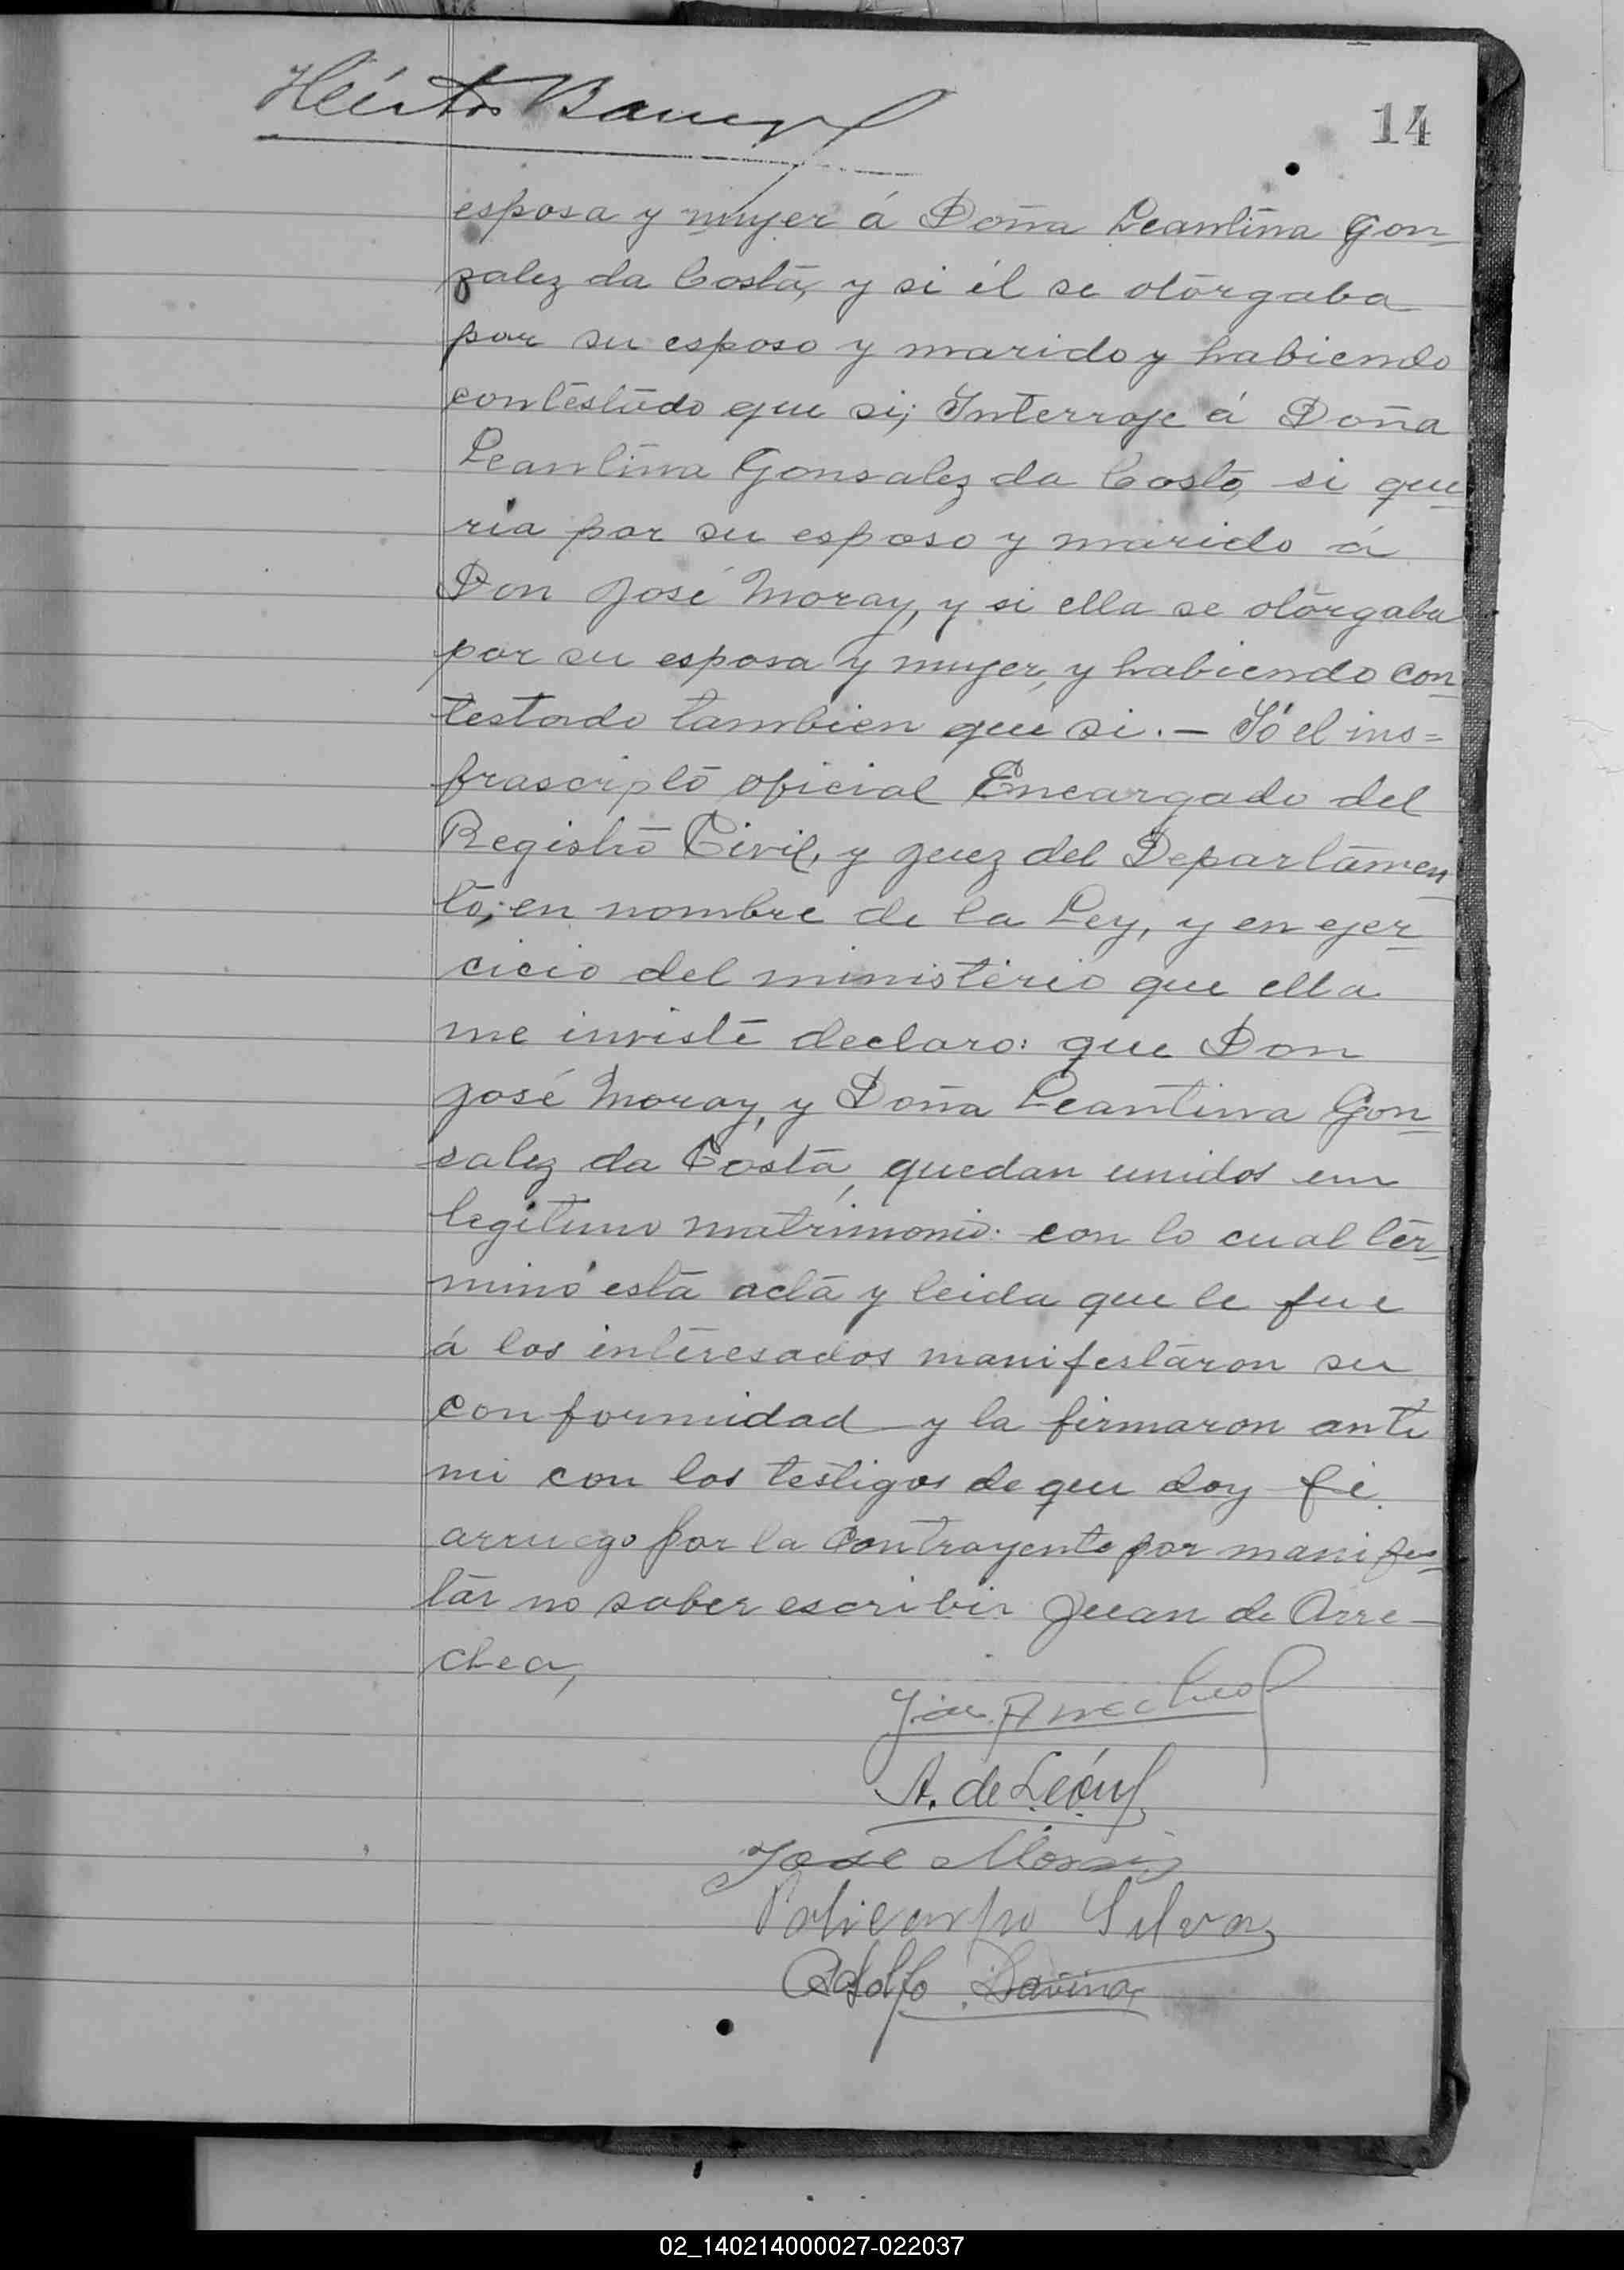 14
esposa y mujer á Doña Leantina Gon-
zalez da Costa, y si él se otorgaba
por su esposo y marido y habiendo
contestado que si; Interroje á Doña
Leantina Gonsalez da Costa, si que-
ria por su esposo y marido á
Don José Moray, y si ella se otorgaba
por su esposa y mujer, y habiendo con-
testado tambien que si. — Yó el ins=
frascripto oficial Encargado del
Registro Civil, y Juez del Departamen-
to; en nombre de la Ley, y en ejer-
cicio del ministerio que ella
me inviste declaro: que Don
José Moray, y Doña Leantina Gon-
salez da Costa, quedan unidos en
legitimo matrimonio: con lo cual ter-
minó esta acta y leida que le fue
á los interesados manifestaron su
conformidad y la firmaron ante
mi con los testigos de que doy fé.
arruego por la Contrayente por manifes-
tar no saber escribir Juan de Arre-
chea,
A. de León
José
Policarpo Silva
Adolfo Daviña
02_140214000027-022037